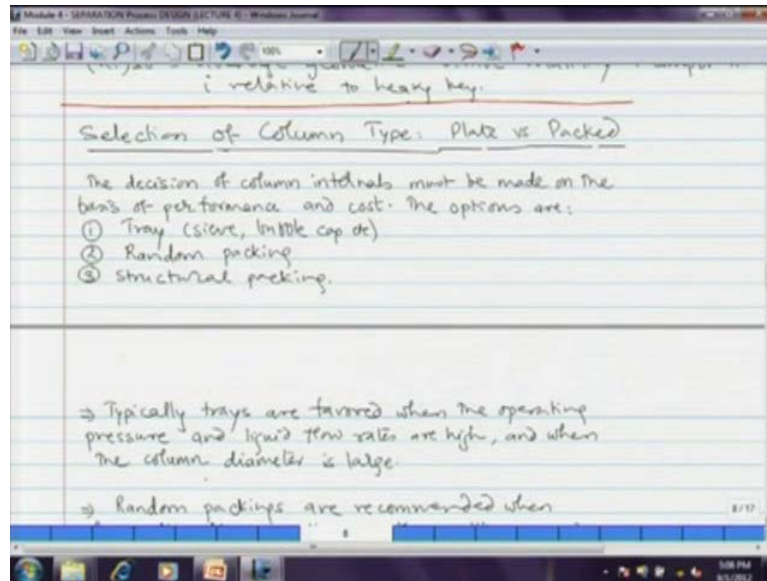 Module 4 - SEPARATION Process DESIGN (LECTURE 4) - Windows Journal
File Edit View Insert Actions Tools Help
100%
i relative to heavy key.
Selection of Column Type: Plate vs Packed
The decision of column internals must be made on the
basis of performance and cost. The options are:
① Tray (sieve, bubble cap etc)
② Random packing
③ Structural packing.
⇒ Typically trays are favored when the operating
pressure and liquid flow rates are high, and when
the column diameter is large.
⇒ Random packings are recommended when
8/17
8
5:08 PM